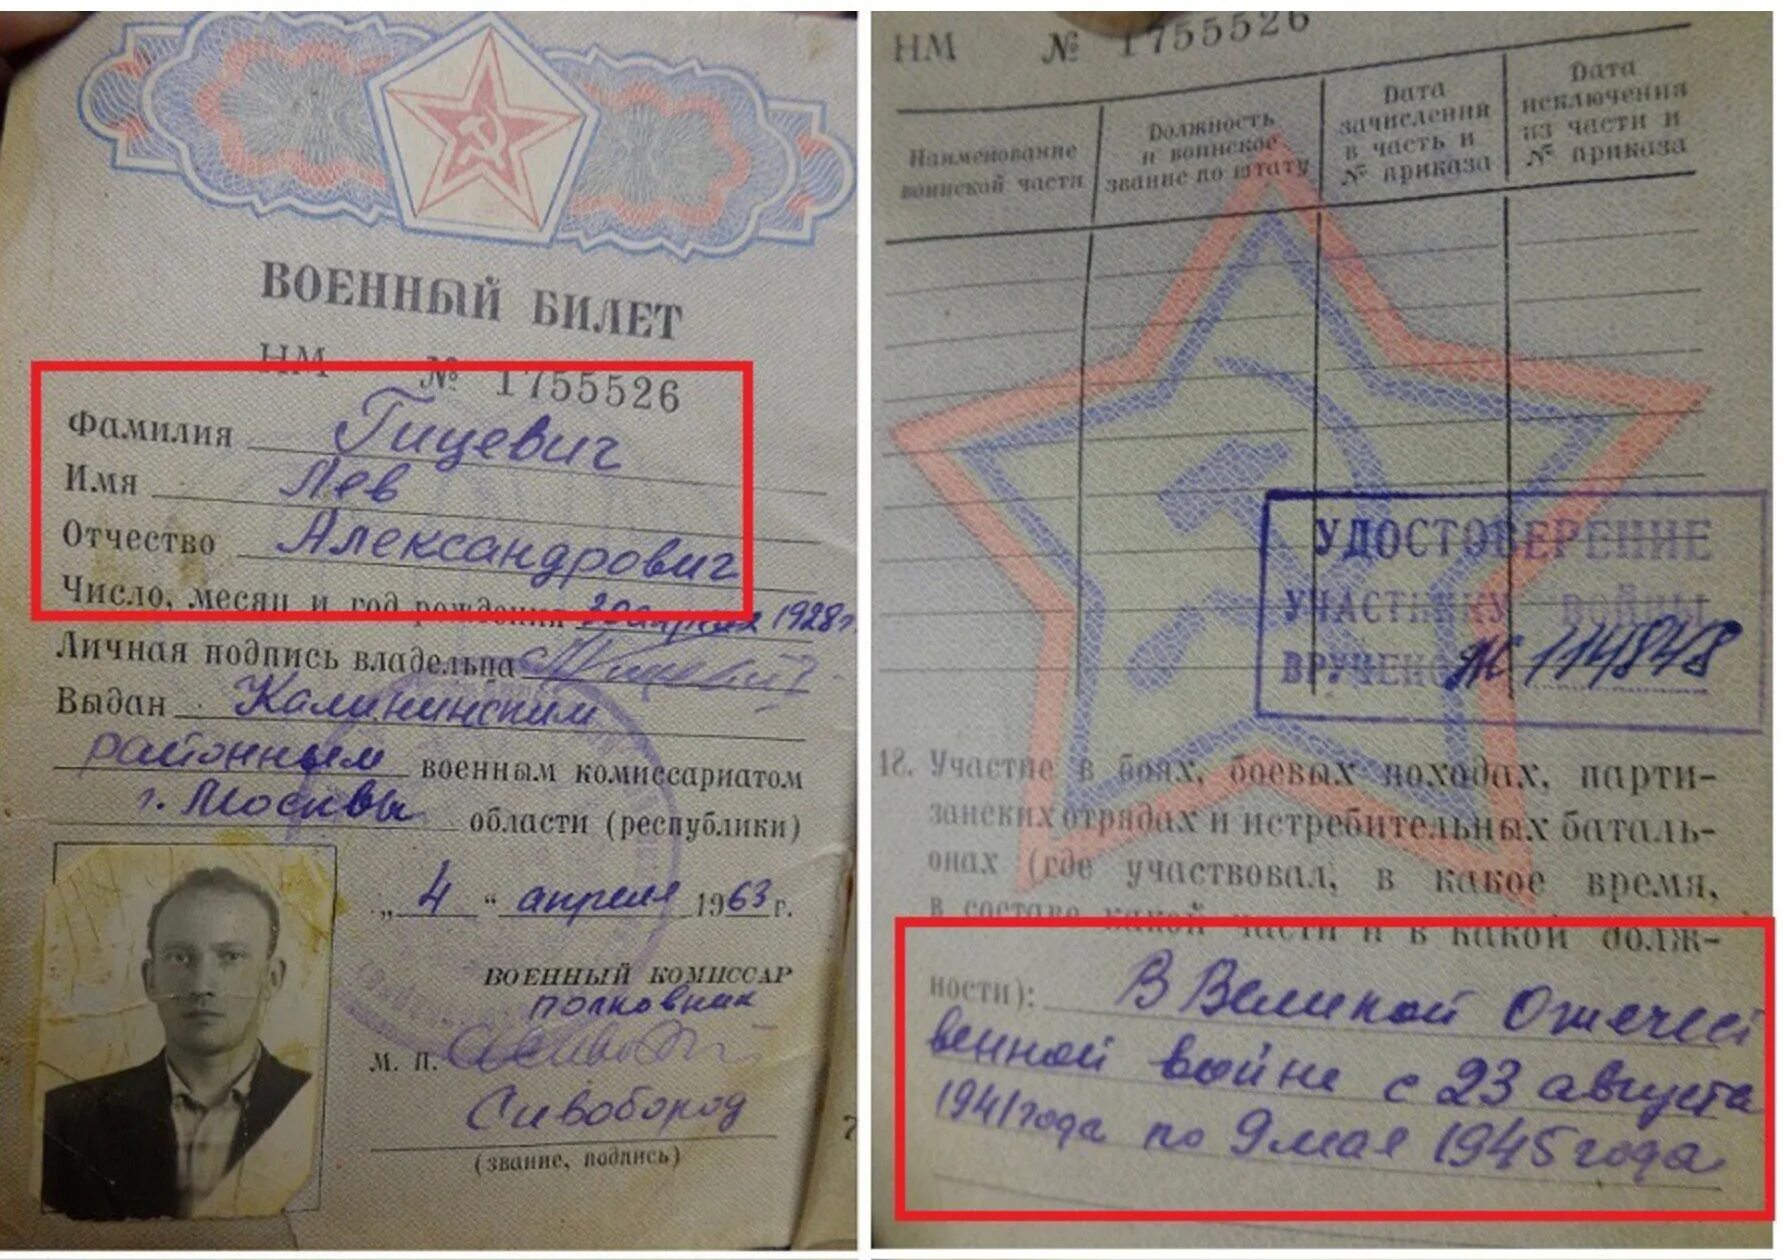 ВОЕННЫЙ БИЛЕТ
НМ № 1755526
Фамилия Гицевич
Имя Лев
Отчество Александрович
Число, месяц и год рождения 20 апреля 1928 г.
Личная подпись владельца
Выдан Калининским
районным военным комиссариатом
г. Москвы области (республики)
„4“ апреля 1963 г.
ВОЕННЫЙ КОМИССАР
полковник
М. П.
Сивобород
(звание, подпись)
НМ № 1755526
Наименование воинской части
Должность и воинское звание по штату
Дата зачисления в часть и № приказа
Дата исключения из части и № приказа
УДОСТОВЕРЕНИЕ
УЧАСТНИКУ ВОЙНЫ
ВРУЧЕНО Ж 114848
18. Участие в боях, боевых походах, парти-
занских отрядах и истребительных баталь-
онах (где участвовал, в какое время,
в составе какой части и в какой долж-
ности): В Великой Отечест
венной войне с 23 августа
1941 года по 9 мая 1945 года